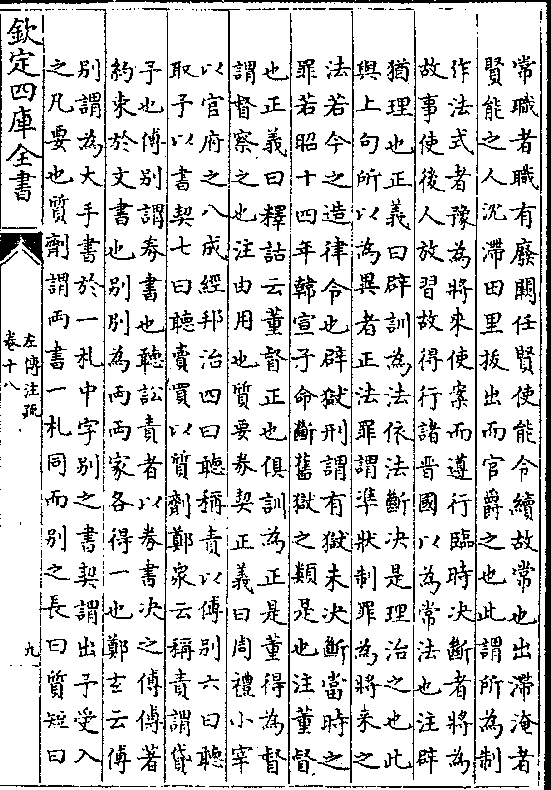 常職者職有廢闕任賢使能令續故常也出滯淹者
賢能之人沉滯田里拔出而官爵之也此謂所為制
作法式者豫為將來使案而遵行臨時決斷者將為
故事使後人放習故得行諸晉國以為常法也注辟
猶理也正義曰辟訓為法依法斷決是理治之也此
與上句所以為異者正法罪謂準狀制罪為將來之
法若今之造律令也辟獄刑謂有獄未決斷當時之
罪若昭十四年韓宣子命斷舊獄之類是也注董督
也正義曰釋詁云董督正也俱訓為正是董得為督
謂督察之也注由用也質要券契正義曰周禮小宰
以官府之八成經邦治四曰聽稱責以傅別六曰聽
取予以書契七曰聽賣買以質劑鄭衆云稱責謂貸
子也傅別謂券書也聽訟責者以券書決之傅傅著
約束於文書也別別為兩兩家各得一也鄭玄云傅
別謂為大手書於一札中字別之書契謂出予受入
之凡要也質劑謂兩書一札同而別之長曰質短曰
欽定四庫全書
左傳注疏
卷十八
九